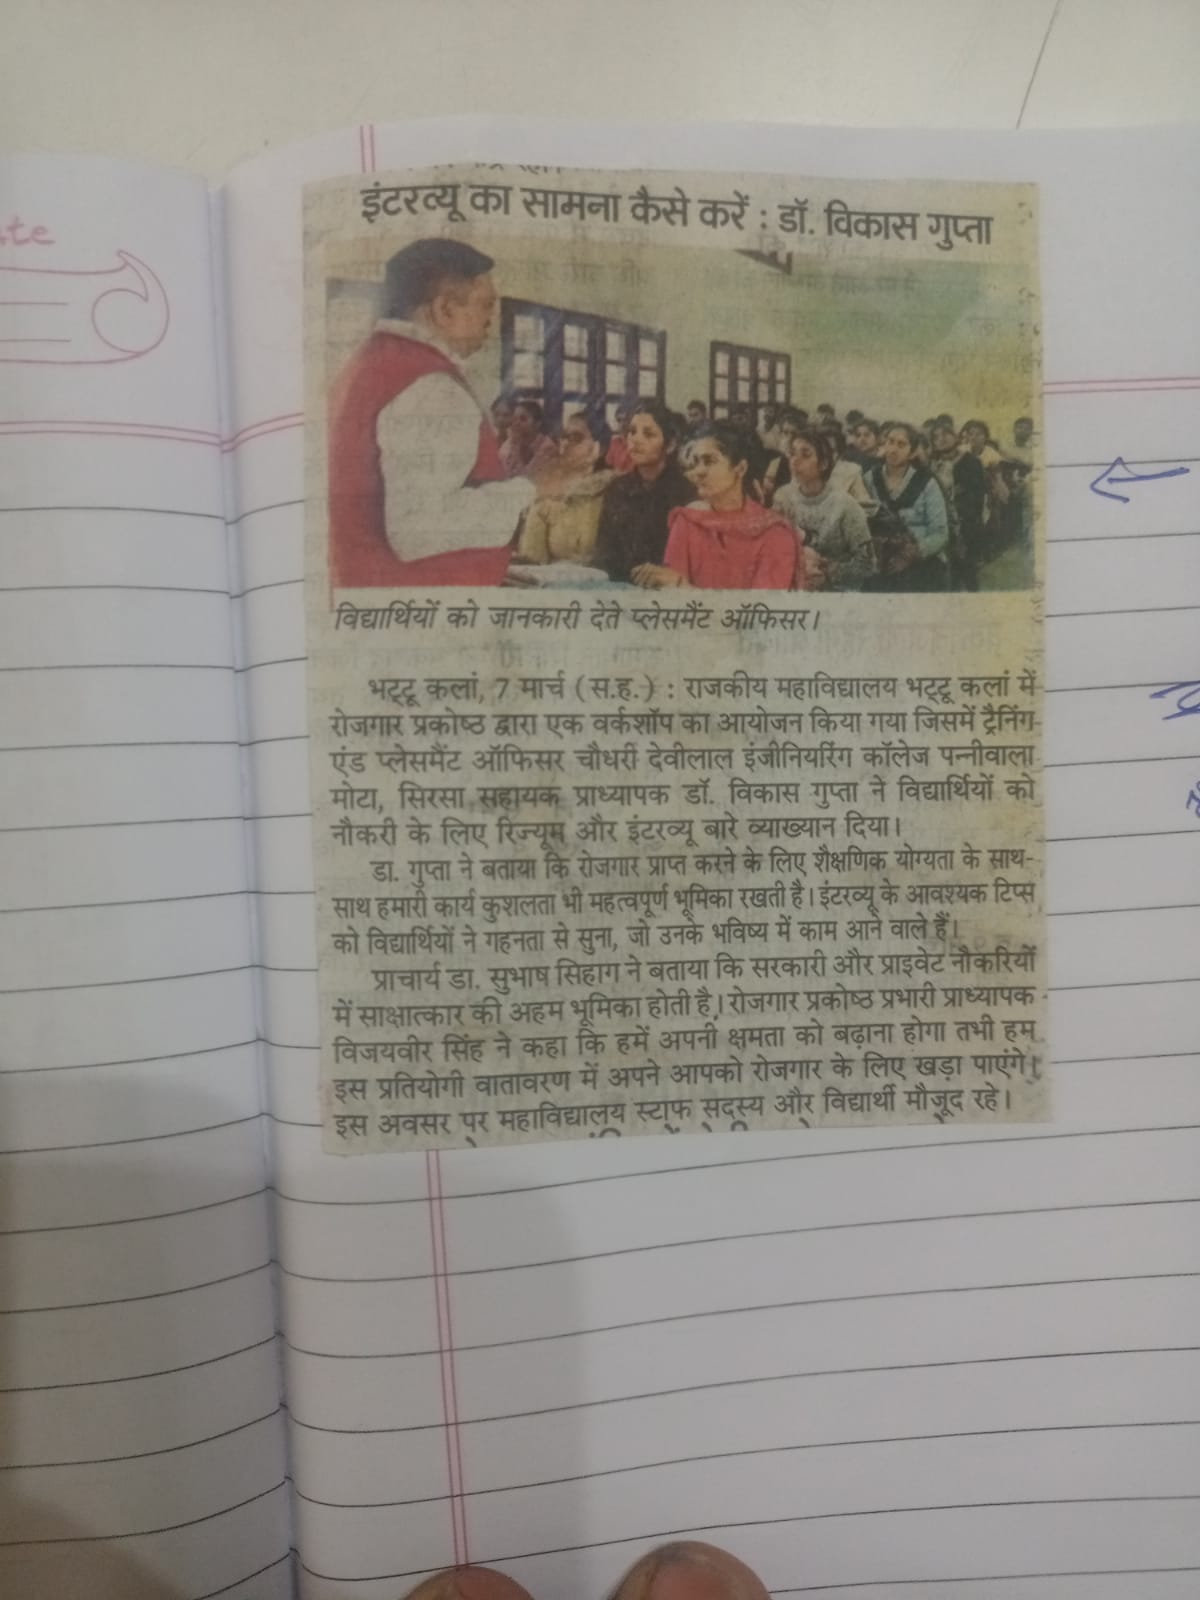 इंटरव्यू का सामना कैसे करें : डॉ. विकास गुप्ता
विद्यार्थियों को जानकारी देते प्लेसमैंट ऑफिसर।
भट्टू कलां, 7 मार्च (स.ह.) : राजकीय महाविद्यालय भट्टू कलां में
रोजगार प्रकोष्ठ द्वारा एक वर्कशॉप का आयोजन किया गया जिसमें ट्रैनिंग
एंड प्लेसमैंट ऑफिसर चौधरी देवीलाल इंजीनियरिंग कॉलेज पन्नीवाला
मोटा, सिरसा सहायक प्राध्यापक डॉ. विकास गुप्ता ने विद्यार्थियों को
नौकरी के लिए रिज्यूम और इंटरव्यू बारे व्याख्यान दिया।
डा. गुप्ता ने बताया कि रोजगार प्राप्त करने के लिए शैक्षणिक योग्यता के साथ-
साथ हमारी कार्य कुशलता भी महत्वपूर्ण भूमिका रखती है। इंटरव्यू के आवश्यक टिप्स
को विद्यार्थियों ने गहनता से सुना, जो उनके भविष्य में काम आने वाले हैं।
प्राचार्य डा. सुभाष सिहाग ने बताया कि सरकारी और प्राइवेट नौकरियों
में साक्षात्कार की अहम भूमिका होती है। रोजगार प्रकोष्ठ प्रभारी प्राध्यापक
विजयवीर सिंह ने कहा कि हमें अपनी क्षमता को बढ़ाना होगा तभी हम
इस प्रतियोगी वातावरण में अपने आपको रोजगार के लिए खड़ा पाएंगे।
इस अवसर पर महाविद्यालय स्टाफ सदस्य और विद्यार्थी मौजूद रहे।